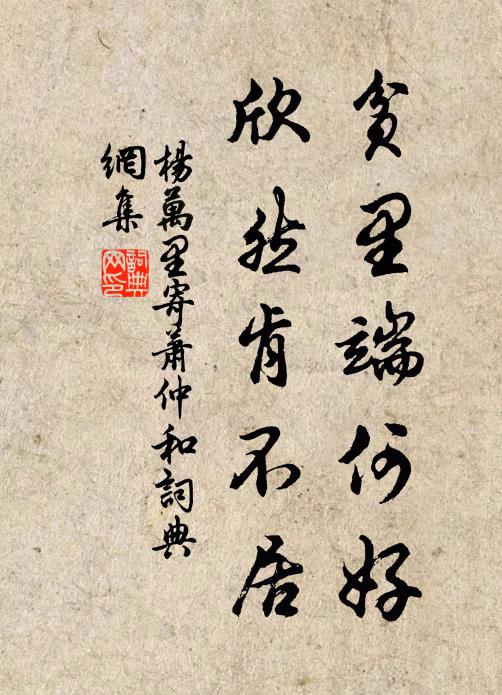 貧里端何好
欣然肯不居
楊萬里寄蕭仲和詞典
網集
詞典
网印